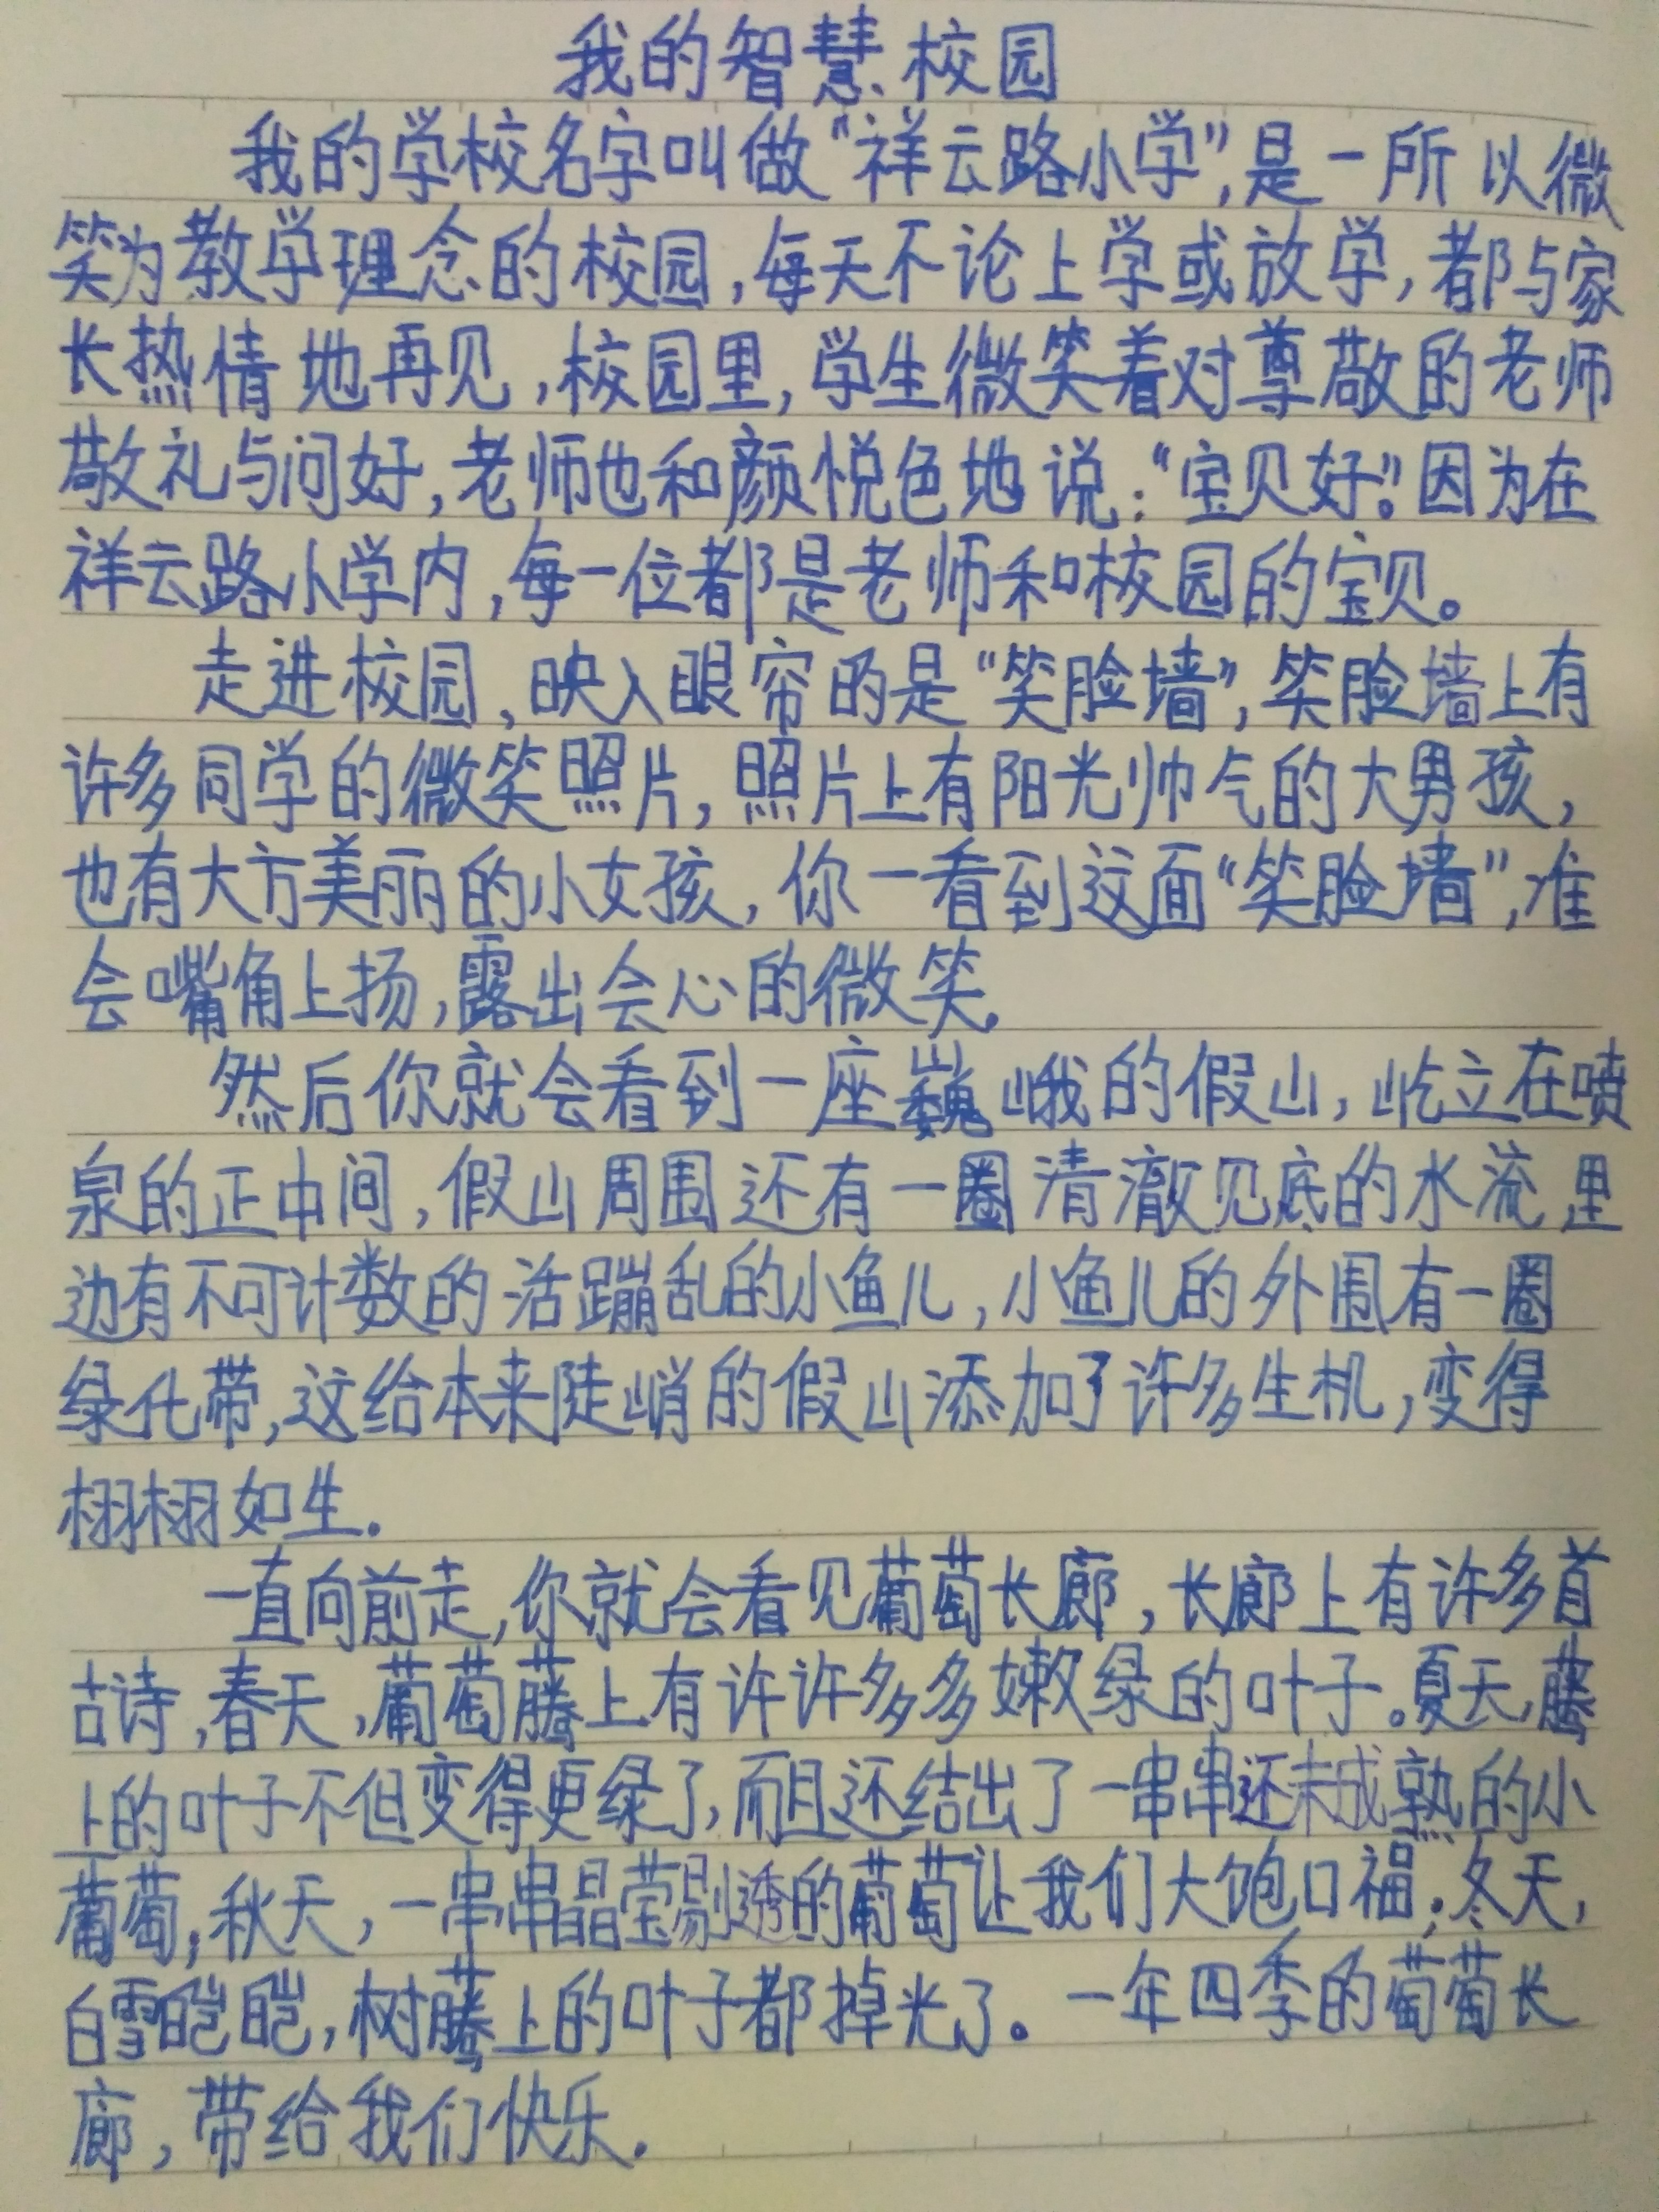 我的智慧校园
我的学校名字叫做“祥云路小学”,是一所以微
笑为教学理念的校园,每天不论上学或放学,都与家
长热情地再见,校园里,学生微笑着对尊敬的老师
敬礼与问好,老师也和颜悦色地说:“宝贝好!”因为在
祥云路小学内,每一位都是老师和校园的宝贝。
走进校园,映入眼帘的是“笑脸墙”,笑脸墙上有
许多同学的微笑照片,照片上有阳光帅气的大男孩,
也有大方美丽的小女孩,你一看到这面“笑脸墙”,准
会嘴角上扬,露出会心的微笑。
然后你就会看到一座巍峨的假山,屹立在喷
泉的正中间,假山周围还有一圈清澈见底的水流里
边有不可计数的活蹦乱的小鱼儿,小鱼儿的外围有一圈
绿化带,这给本来陡峭的假山添加了许多生机,变得
栩栩如生.
一直向前走,你就会看见葡萄长廊,长廊上有许多首
古诗,春天,葡萄藤上有许许多多嫩绿的叶子。夏天,藤
上的叶子不但变得更绿了,而且还结出了一串串还未成熟的小
葡萄;秋天,一串串晶莹剔透的葡萄让我们大饱口福;冬天,
白雪皑皑,树藤上的叶子都掉光了。一年四季的葡萄长
廊,带给我们快乐.